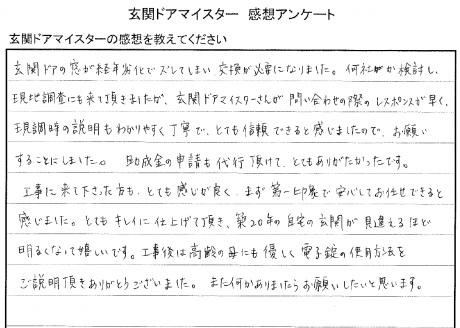 玄関ドアマイスター 感想アンケート
玄関ドアマイスターの感想を教えてください
玄関ドアの窓が経年劣化でズレてしまい、交換が必要になりました。何社かが検討し、
現地調査にも来て頂きましたが、玄関ドアマイスターさんが問い合わせの際のレスポンスが早く、
現調時の説明もわかりやすく丁寧で、とても信頼できると感じましたので、お願い
することにしました。 助成金の申請も代行頂けて、とてもありがたかったです。
工事に来て下さった方も、とても感じが良く、まず第一印象で安心してお任せできると
感じました。とてもキレイに仕上げて頂き、築20年の自宅の玄関が見違えるほど
明るくなって嬉しいです。工事後は高齢の母にも優しく電子錠の使用方法を
ご説明頂きありがとうございました。また何かありましたらお願いしたいと思います。